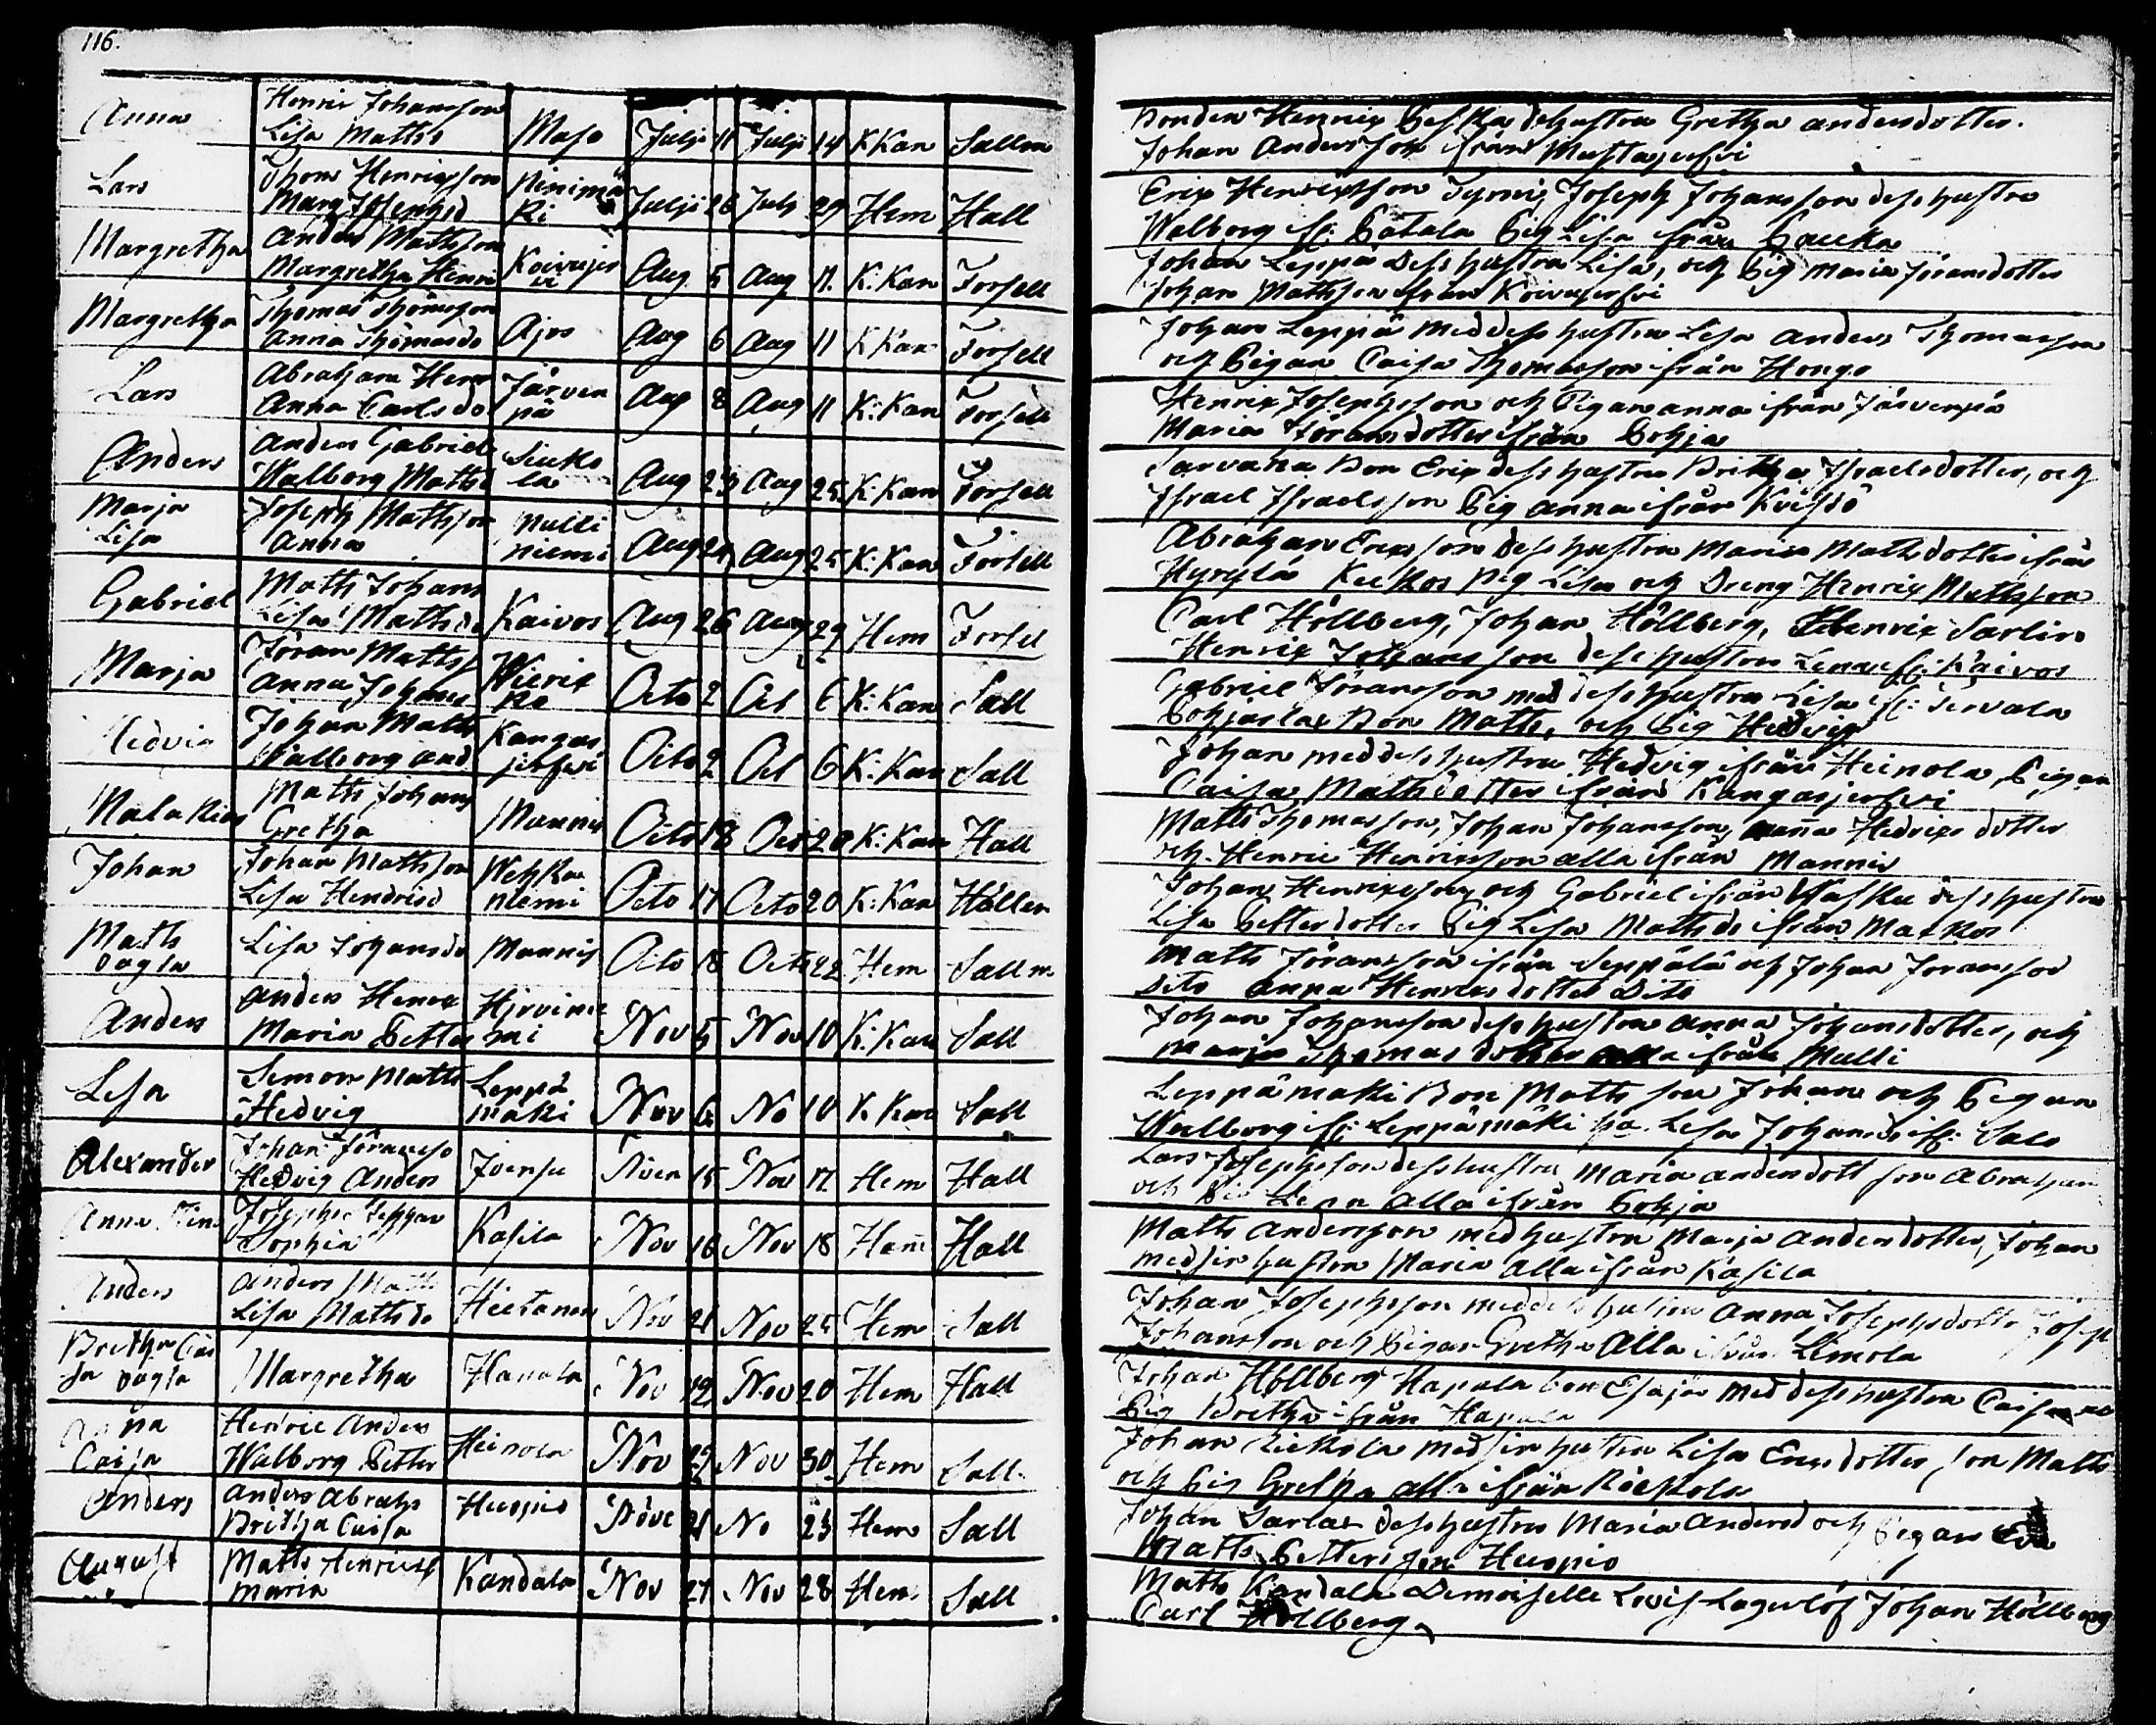 116.
Anna
Henric Johansson
Lisa Matts
Maso
Julji 11 Julji 14 K Kan Sallm
Lars
Thom Henricsson
Marg Josephsd
Ninimä
ki
Julji 26 July 29 Hem Hall
Margretha
Anders Mattsson
Margretha Henri
Koivujer
vi
Aug 5 Aug 11. K: Kan Forsell
Margretha
Thomas Thomasson
Anna Thomasdo
Ajos
Aug 6 Aug 11 K Kan Forsell
Lars
Abraham Henr
Anna Carlsdo
Järven
pä
Aug 8 Aug 11 K: Kan Forsell
Anders
Anders Gabriels
Walborg Matts
Siuko
la
Aug 23 Aug 25 K: Kan Forsell
Marja
Lisa
Joseph Mattsson
Anna
Nulli
niemi
Aug 24 Aug 25 K: Kan Forsell
Gabriel
Matts Johans
Lisa Mattsdo
Kaivos
Aug 26 Aug 29 Hem Forsel
Marja
Jöran Matts
Anna Johans
Wierik
ko
Octo 2 Oct 6 K: Kan Sall
Hedvig
Johan Matts
Walborg And
Kangas
jerfwi
Octo 2 Oct 6 K: Kan Sall
Malakias
Matts Johans
Gretha
Mannis
Octo 18 Oct 20 K: Kan Hall
Johan
Johan Mattsson
Lisa Hendrisd
Wehka
niemi
Octo 17 Octo 20 K: Kan Hällen
Matts
oagta
Lisa Johansdo
Mannis
Octo 18 Octo 22 Hem Sallm
Anders
Anders Henr
Maria Petter
Hirvinie
mi
Nov 5 Nov 10 K: Kan Sall
Lisa
Simon Matts
Hedvig
Leppä
mäki
Nov 6 No 10 K Kan Sall
Alexander
Johan Jöransso
Hedvig Anders
Joensu
Noven 15 Nov 17 Hem Hall
Anna Stin
Joseph
Sophia
Kasila
Nov 16 Nov 18 Hem Hall
Anders
Anders Matts
Lisa Mattsdo
Hietanen
Nov 21 Nov 25 Hem Sall
Bretha Cai
sa oagta
Margretha
Hanala
Nov 19 Nov 20 Hem Hall
Anna
Caisa
Henric Anders
Walborg Petter
Heinola
Nov 29 Nov 30 Hem Sall
Anders
Anders Abrahs
Britha Caisa
Huopio
Nove 21 No 23 Hem Sall
August
Matts Henricss
Maria
Kandala
Nov 27 Nov 28 Hem Sall
Bonden Henrix Peska des hustru Gretha Andersdotter.
Johan Andersson ifrån Mustajerfvi
Erix Henrixsson Tyrnis Joseph Johansson dess hustru
Walborg if: Patala Pig Lisa ifrån Pauka
Johan Leppä dess hustru Lisa, och Pig Maria Jöransdotter
Johan Mattsson ifrån Koivujerfvi
Johan Leppä med dess hustru Lisa Anders Thomasson
och Pigan Caisa Thomasson ifrån Hongo
Henrix Josephsson och Pigan Anna ifrån Järvenpä
Maria Jöransdotter ifrån Pohja
Sarvana Bon Erix dess hustru Britha Israelsdotter, och
Israel Israelsson Pig Anna ifrån Kössö
Abraham Erixsson dess hustru Maria Mattsdotter ifrån
Hyrylä Kuckos pig Lisa och Dreng Henrix Mattsson
Carl Höllberg, Johan Höllberg, Henrix Sarlin
Henrix Johansson dess hustru Lena if: Kaivos
Gabriel Jöransson med dess hustru Lisa if: Tervala
Pohjaslax Bon Matts, och Pig Hedvig
Johan med dess hustru Hedvig ifrån Heinola Pigan
Caisa Mattsdotter ifrån Kangasjerfvi
Matts Thomasson, Johan Johansson, Anna Hedvix dotter
och Henric Henricsson alla ifrån Mannis
Johan Henrixsson och Gabriel ifrån Kasku dess hustru
Lisa Petterdotter Pig Lisa Mattsdo ifrån Matkos
Matts Jöransson ifrån Seppälä och Johan Joransson
dito Anna Henrixsdotter Dito
Johan Johansson dess hustru Anna Johansdotter, och
Marja Thomasdotter alla ifrån Mulli
Leppämäki Bon Matts son Johan och Pigan
Walborg if: Leppämäki pa. Lisa Johansd if: Salo
Lars Josephsson dess hustru Maria Andersdott son Abraham
och Pig Lena Alla ifrån Pohja
Matts Andersson med hustru Marja Andersdotter, Johan
med sin hustru Maria Alla ifrån Kasila
Johan Josephsson med dess hustru Anna Josephsdottr Joseph
Johansson och Pigan Gretha Alla ifrån Limola
Johan Höllberg Hapala bon Esajas med dess hustru Caisa
Pig Bretha ifrån Hapala
Johan Riekola med sin hustru Lisa Erixsdotter, son Matts
och Pig Gretha alla ifrån Riekola
Johan Sarlas dess hustru Maria Andersd och Pigan Eva
Matts Pettersson Huopio
Matts Kandala Demoiselle Lovis Lagerlöf Johan Höllberg
Carl Höllberg